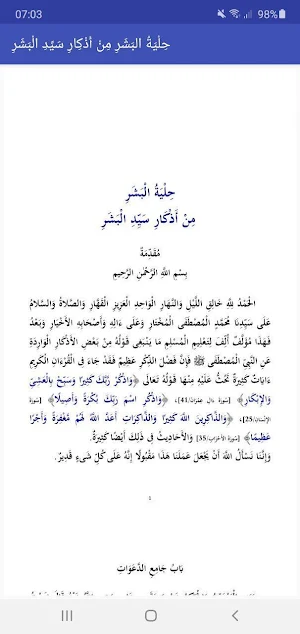 07:03
98%
حِلْيَةُ البَشَرِ مِنْ أَذْكَارِ سَيِّدِ الْبَشَرِ
حِلْيَةُ الْبَشَرِ
مِنْ أَذْكَارِ سَيِّدِ الْبَشَرِ
مُقَدِّمَةٌ
بِسْمِ اللَّهِ الرَّحْمٰنِ الرَّحِيمِ
الْحَمْدُ لِلَّهِ خَالِقِ اللَّيْلِ وَالنَّهَارِ الْوَاحِدِ الْعَزِيزِ الْقَهَّارِ وَالصَّلاةُ وَالسَّلامُ
عَلَى سَيِّدِنَا مُحَمَّدٍ الْمُصْطَفَى الْمُخْتَارِ وَعَلَى ءَالِهِ وَأَصْحَابِهِ الأَخْيَارِ وَبَعْدُ
فَهَذَا مُؤَلَّفٌ أُلِّفَ لِتَعْلِيمِ الْمُسْلِمِ مَا يَنْبَغِى قَوْلُهُ مِنْ بَعْضِ الأَذْكَارِ الْوَارِدَةِ
عَنِ النَّبِىِّ الْمُصْطَفَى ﷺ فَإِنَّ فَضْلَ الذِّكْرِ عَظِيمٌ فَقَدْ جَاءَ فِى الْقُرْءَانِ الْكَرِيمِ
ءَايَاتٌ كَثِيرَةٌ تَحُثُّ عَلَيْهِ مِنْهَا قَوْلُهُ تَعَالَى ﴿وَاذْكُرْ رَبَّكَ كَثِيرًا وَسَبِّحْ بِالْعَشِىِّ
وَالإِبْكَارِ﴾ [سورة ءال عمران/41]، ﴿وَاذْكُرِ اسْمَ رَبِّكَ بُكْرَةً وَأَصِيلًا﴾ [سورة
الإنسان/25]، ﴿وَالذَّاكِرِينَ اللَّهَ كَثِيرًا وَالذَّاكِرَاتِ أَعَدَّ اللَّهُ لَهُمْ مَغْفِرَةً وَأَجْرًا
عَظِيمًا﴾ [سورة الأحزاب/35] وَالأَحَادِيثُ فِى ذَلِكَ أَيْضًا كَثِيرَةٌ.
وَإِنَّنَا نَسْأَلُ اللَّهَ أَنْ يَجْعَلَ عَمَلَنَا هَذَا مَقْبُولًا إِنَّهُ عَلَى كُلِّ شَىْءٍ قَدِيرٌ.
بَابُ جَامِعِ الدَّعَوَاتِ